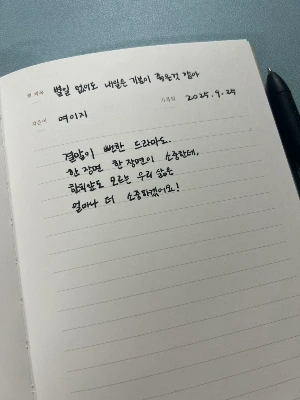 책 제목 별일 없어도 내일은 기분이 좋을것 같아
지은이 여이지 기록일 2025. 9. 25
결말이 뻔한 드라마도
한 장면 한 장면이 소중한데,
한치앞도 모르는 우리 삶은
얼마나 더 소중하겠어요!